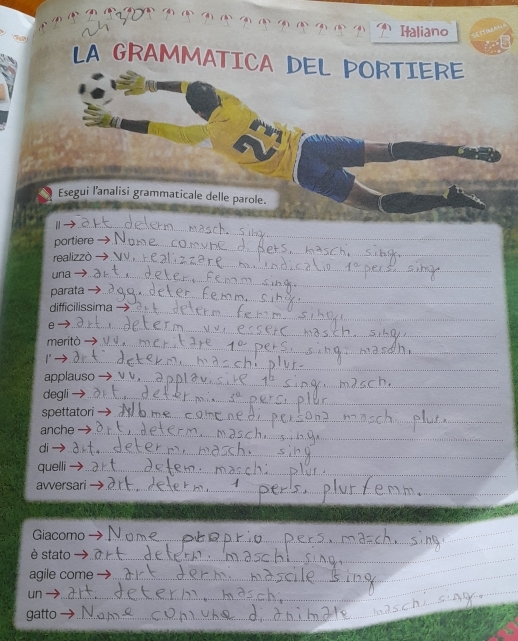 24 30
Italiano
SETTIMANA
LA GRAMMATICA DEL PORTIERE
Esegui l'analisi grammaticale delle parole.
Il → art determ masch. sing.
portiere → Nome comune d. pers. masch. sing.
realizzò → vv. realizzare m. indicatio 1ª pers. sing
una → art. deter. femm sing.
parata → agg. deter femm. sing.
difficilissima → art determ femm sing.
e → art. determ vv. essere masch. sing.
meritò → vv. mertare 1ª pers. sing. masch.
l' → art determ. masch. plur.
applauso → vv. applausire 1ª sing. masch.
degli → art. determ. 3ª pers. plur
spettatori → Nome comune di persona masch. plur.
anche → art. determ. masch. sing.
di → art. determ. masch. sing
quelli → art determ. masch. plur.
avversari → art. determ. 1 pers. plur femm.
Giacomo → Nome proprio pers. masch. sing.
è stato → art determ. masch. sing.
agile come → art derm. mascile sing
un → art. determ. masch.
gatto → Nome comune di animale masch. sing.